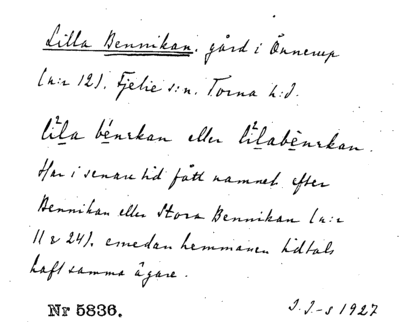 Lilla Bennikan, gård i Önnerup
(n:r 12). Fjelie s:n. Torna h:d.
lila benikan eller lilabenikan.
Har i senare tid fått namnet efter
Bennikan eller Stora Bennikan (n:r
11 & 24), emedan hemmanen tidtals
haft samma ägare.
Nr 5836. I. I-s 1927